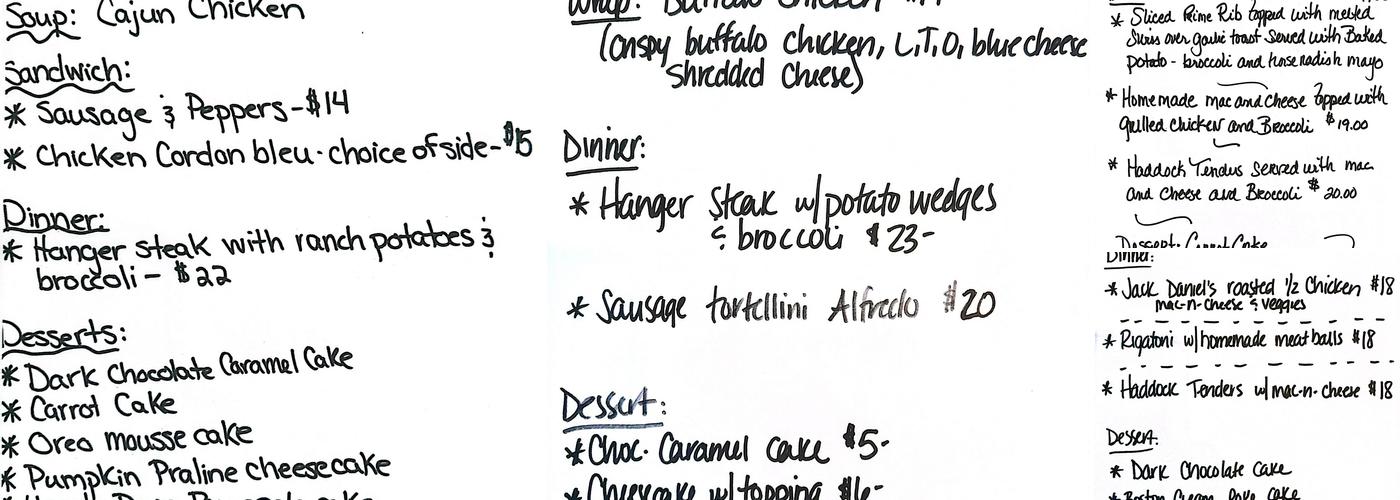 Soup: Cajun Chicken
Sandwich:
* Sausage & Peppers - $14
* Chicken Cordon bleu - choice of side - $15
Dinner:
* Hanger steak with ranch potatoes &
broccoli - $22
Desserts:
* Dark Chocolate Caramel Cake
* Carrot Cake
* Oreo mousse cake
* Pumpkin Praline cheesecake
Wrap: Buffalo Chicken
(crispy buffalo chicken, L,T,O, blue cheese
shredded cheese)
Dinner:
* Hanger Steak w/potato wedges
& broccoli $23-
* Sausage tortellini Alfredo $20
Dessert:
* Choc. Caramel cake $5-
* Cheescake w/topping $6-
* Sliced Prime Rib topped with melted
Swiss over garlic toast Served with Baked
potato - broccoli and horseradish mayo
* Homemade mac and cheese topped with
grilled chicken and Broccoli $19.00
* Haddock Tenders served with mac
and cheese and Broccoli $20.00
Dessert: Carrot Cake
Dinner:
* Jack Daniel's roasted 1/2 Chicken $18
mac-n-cheese & veggies
* Rigatoni w/homemade meatballs $18
* Haddock Tenders w/ mac-n-cheese $18
Dessert:
* Dark Chocolate Cake
* Boston Cream Cake